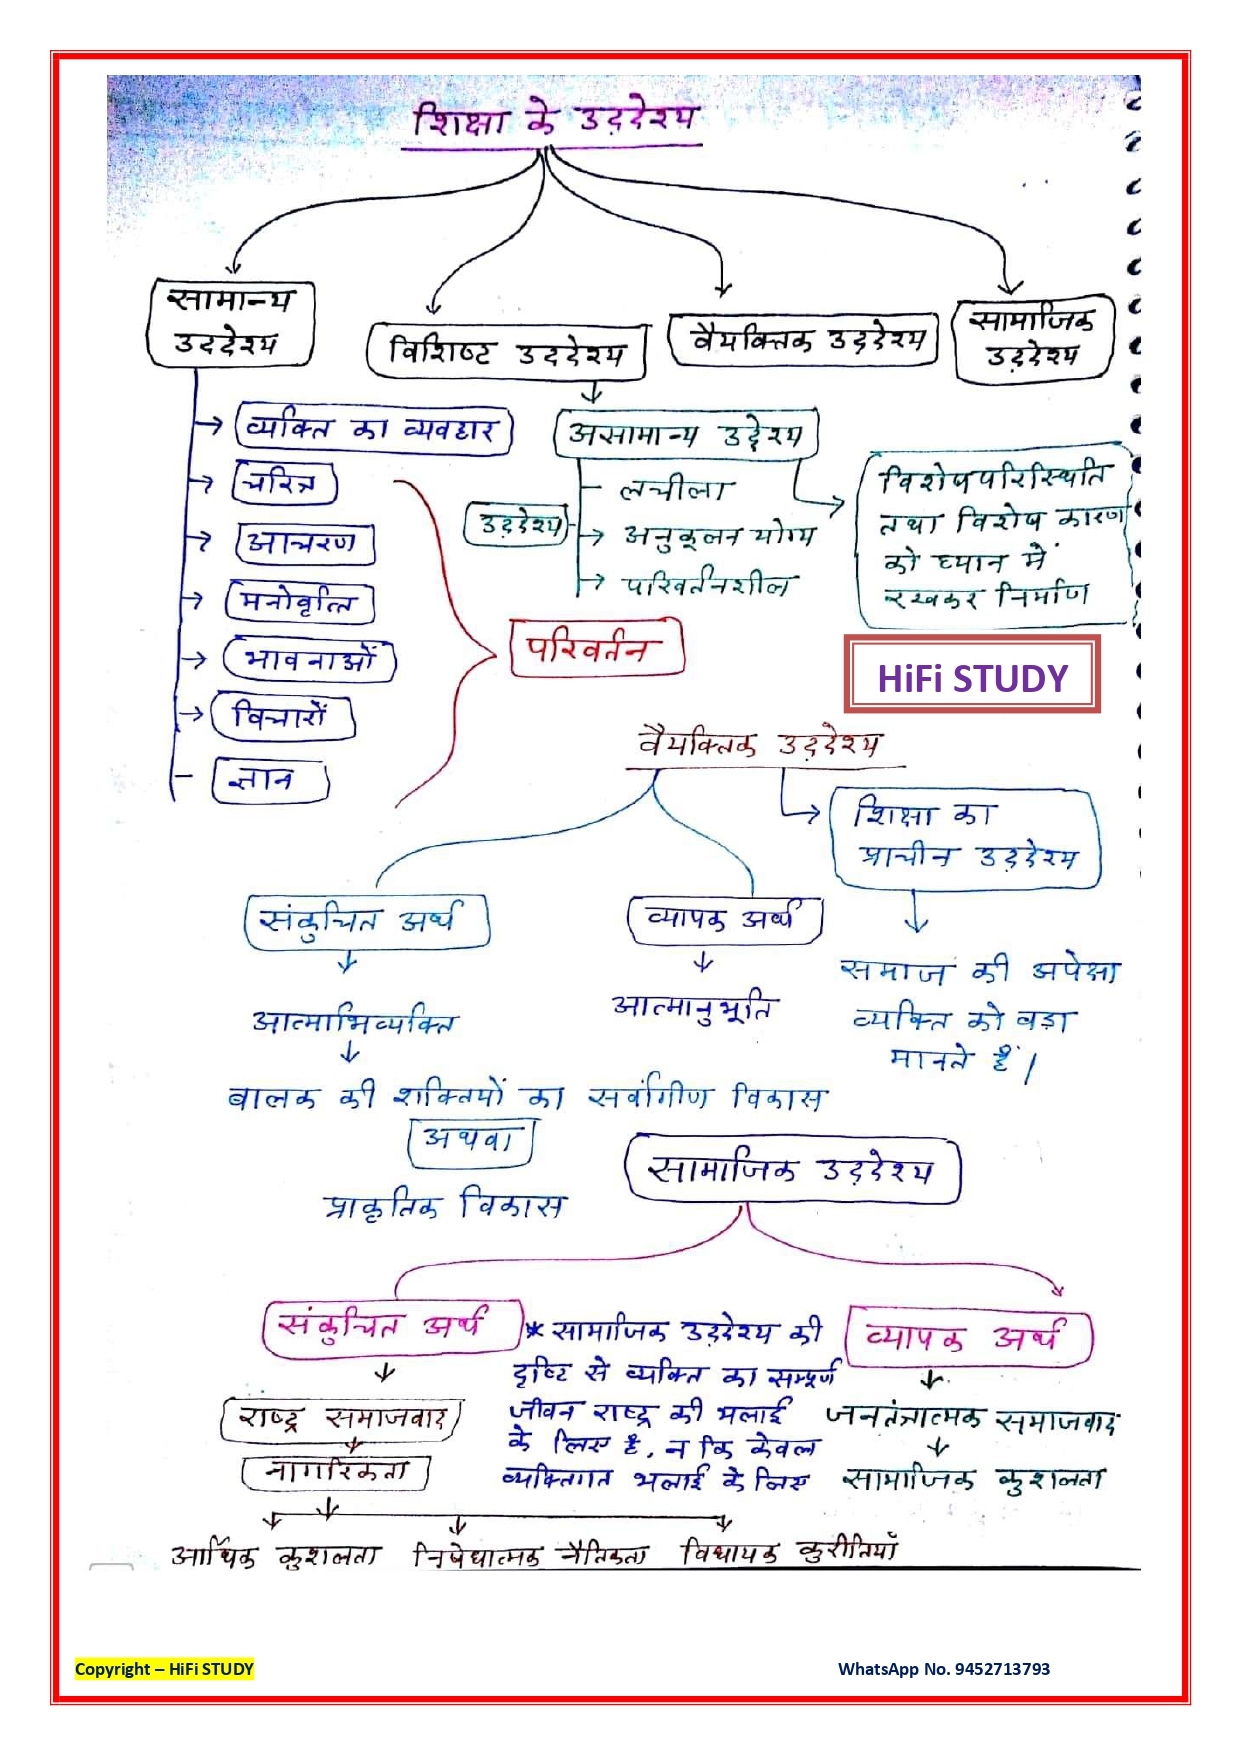 शिक्षा के उद्देश्य
सामान्य
उद्देश्य
विशिष्ट उद्देश्य
वैयक्तिक उद्देश्य
सामाजिक
उद्देश्य
व्यक्ति का व्यवहार
चरित्र
आचरण
मनोवृत्ति
भावनाओं
विचारों
ज्ञान
परिवर्तन
असामान्य उद्देश्य
उद्देश्य
लचीला
अनुकूलन योग्य
परिवर्तनशील
विशेष परिस्थिति
तथा विशेष कारण
को ध्यान में
रखकर निर्माण
HiFi STUDY
वैयक्तिक उद्देश्य
शिक्षा का
प्राचीन उद्देश्य
समाज की अपेक्षा
व्यक्ति को बड़ा
मानते हैं।
संकुचित अर्थ
आत्माभिव्यक्ति
व्यापक अर्थ
आत्मानुभूति
बालक की शक्तियों का सर्वांगीण विकास
अथवा
प्राकृतिक विकास
सामाजिक उद्देश्य
संकुचित अर्थ
राष्ट्र समाजवाद
नागरिकता
* सामाजिक उद्देश्य की
दृष्टि से व्यक्ति का सम्पूर्ण
जीवन राष्ट्र की भलाई
के लिए है, न कि केवल
व्यक्तिगत भलाई के लिए
व्यापक अर्थ
जनतंत्रात्मक समाजवाद
सामाजिक कुशलता
आर्थिक कुशलता निषेधात्मक नैतिकता विधायक कुरीतियाँ
Copyright – HiFi STUDY WhatsApp No. 9452713793